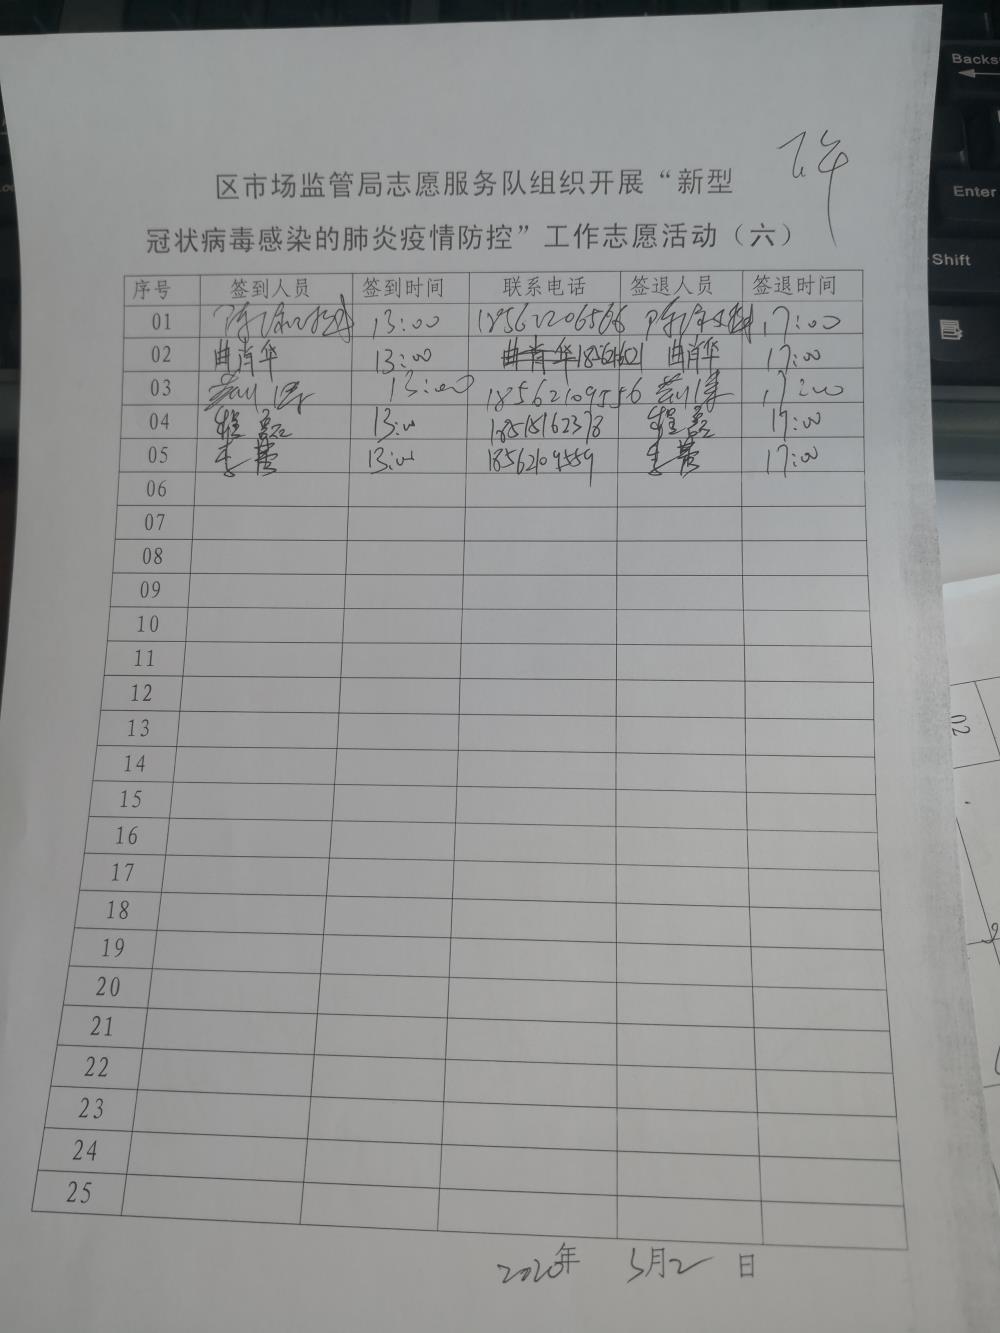 下午
区市场监管局志愿服务队组织开展“新型
冠状病毒感染的肺炎疫情防控”工作志愿活动（六）
序号 签到人员 签到时间 联系电话 签退人员 签退时间
01 13:00 18562206566 17:00
02 曲肖华 13:00 曲肖华 17:00
03 13:00 18562109556 17:00
04 程磊 13:00 18515162378 程磊 17:00
05 李蕾 13:00 18562109559 李蕾 17:00
06
07
08
09
10
11
12
13
14
15
16
17
18
19
20
21
22
23
24
25
2020年 3月2 日
Backs
Enter
Shift
02